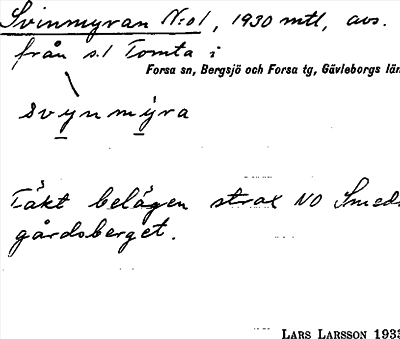 Svinmyran N:o1, 1930 mtl, avs.
från s.1 Tomta i
Forsa sn, Bergsjö och Forsa tg, Gävleborgs län
svynmýra
Täkt belägen strax NO Smeds
gårdsberget.
LARS LARSSON 1933